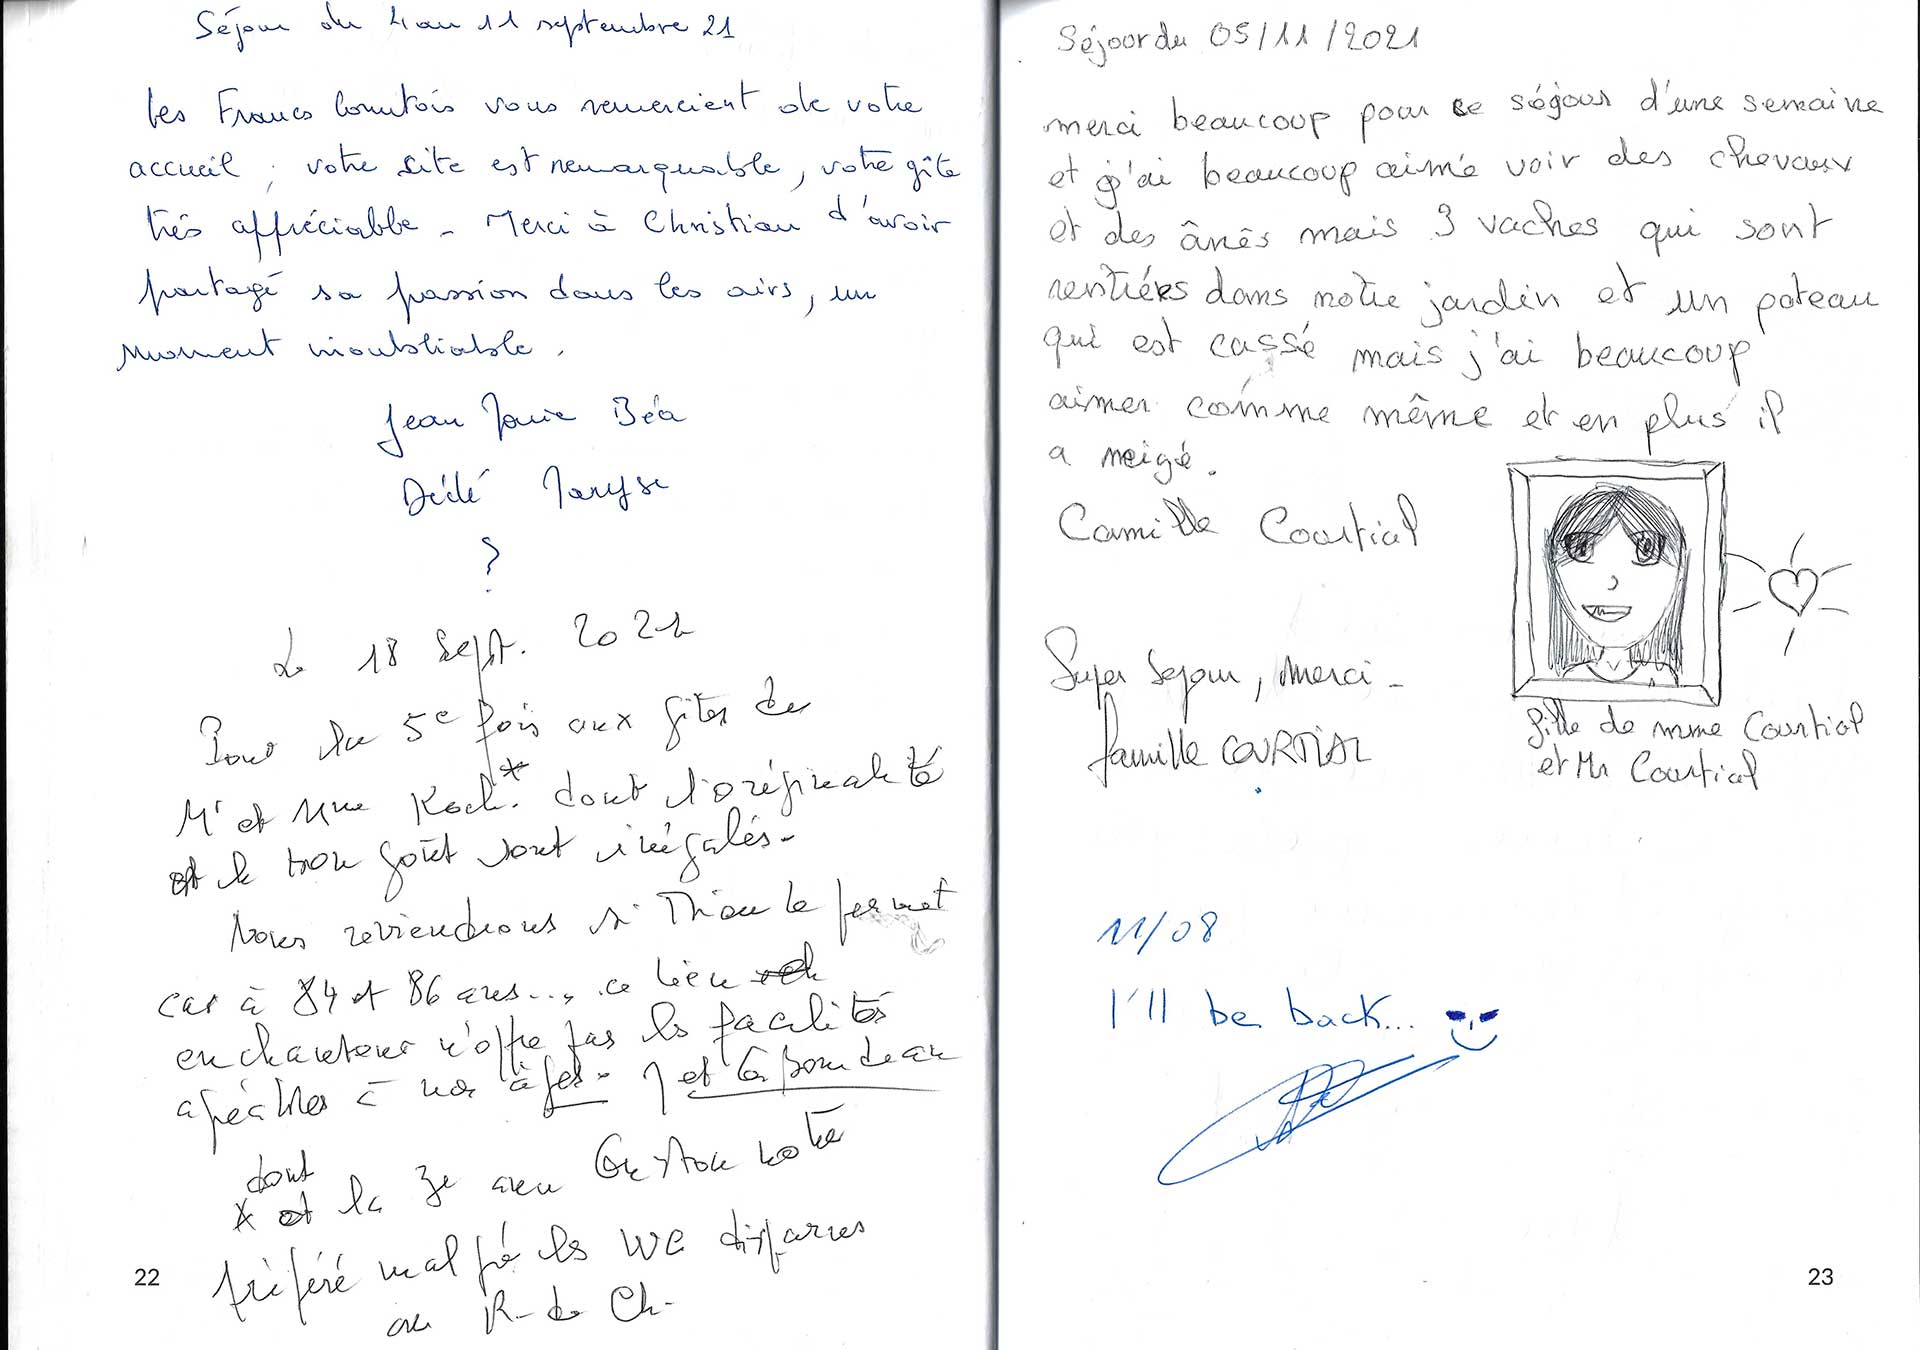 Séjour du 4 au 11 septembre 21
Les Francs Comtois vous remercient de votre
accueil ; votre site est remarquable, votre gîte
très appréciable. Merci à Christian d'avoir
partagé sa passion dans les airs, un
moment inoubliable.
Jean Marie Béa
Dédé Maryse
?
Le 18 Sept. 2021
Pour la 5e fois aux gîtes de
Mr et Mme Koch.* dont l'originalité
et le bon goût sont inégalés.
Nous reviendrons si Dieu le permet
car à 84 et 86 ans..., ce lieu
enchanteur n'offre pas les facilités
agréables à nos âges.
dont
* la 3e au notre
préféré malgré les WC disparus
au R. de Ch.
22
Séjour du 05/11/2021
merci beaucoup pour ce séjour d'une semaine
et j'ai beaucoup aimé voir des chevaux
et des ânês mais 3 vaches qui sont
rentrées dans notre jardin et un poteau
qui est cassé mais j'ai beaucoup
aimer comme même et en plus il
a neigé.
Camille Courtial
Super Sejour, Merci -
famille COURTIAL
fille de mme Courtial
et Mr Courtial
11/08
I'll be back...
23